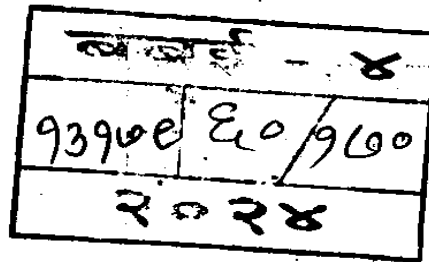 बबई - ४
१३१७९ ६० / १७०
२०२४